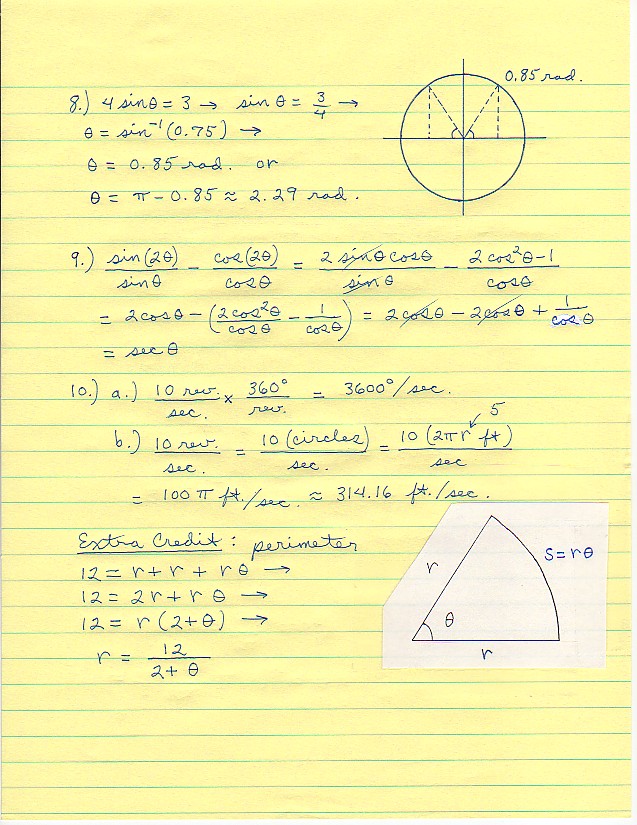 8.) 4 sinθ = 3 → sin θ = 3/4 →
0.85 rad.
θ = sin⁻¹(0.75) →
θ = 0.85 rad. or
θ = π - 0.85 ≈ 2.29 rad.
9.) sin(2θ)/sinθ - cos(2θ)/cosθ = 2 sinθ cosθ/sinθ - (2cos²θ-1)/cosθ
= 2cosθ - (2cos²θ/cosθ - 1/cosθ) = 2cosθ - 2cosθ + 1/cosθ
= sec θ
10.) a.) 10 rev./sec. × 360°/rev. = 3600°/sec.
5
b.) 10 rev./sec. = 10 (circles)/sec. = 10 (2πr ft)/sec
= 100 π ft./sec. ≈ 314.16 ft./sec.
Extra Credit: perimeter
12 = r + r + rθ →
12 = 2r + r θ →
12 = r (2+θ) →
r = 12/(2+ θ)
r
S = rθ
θ
r